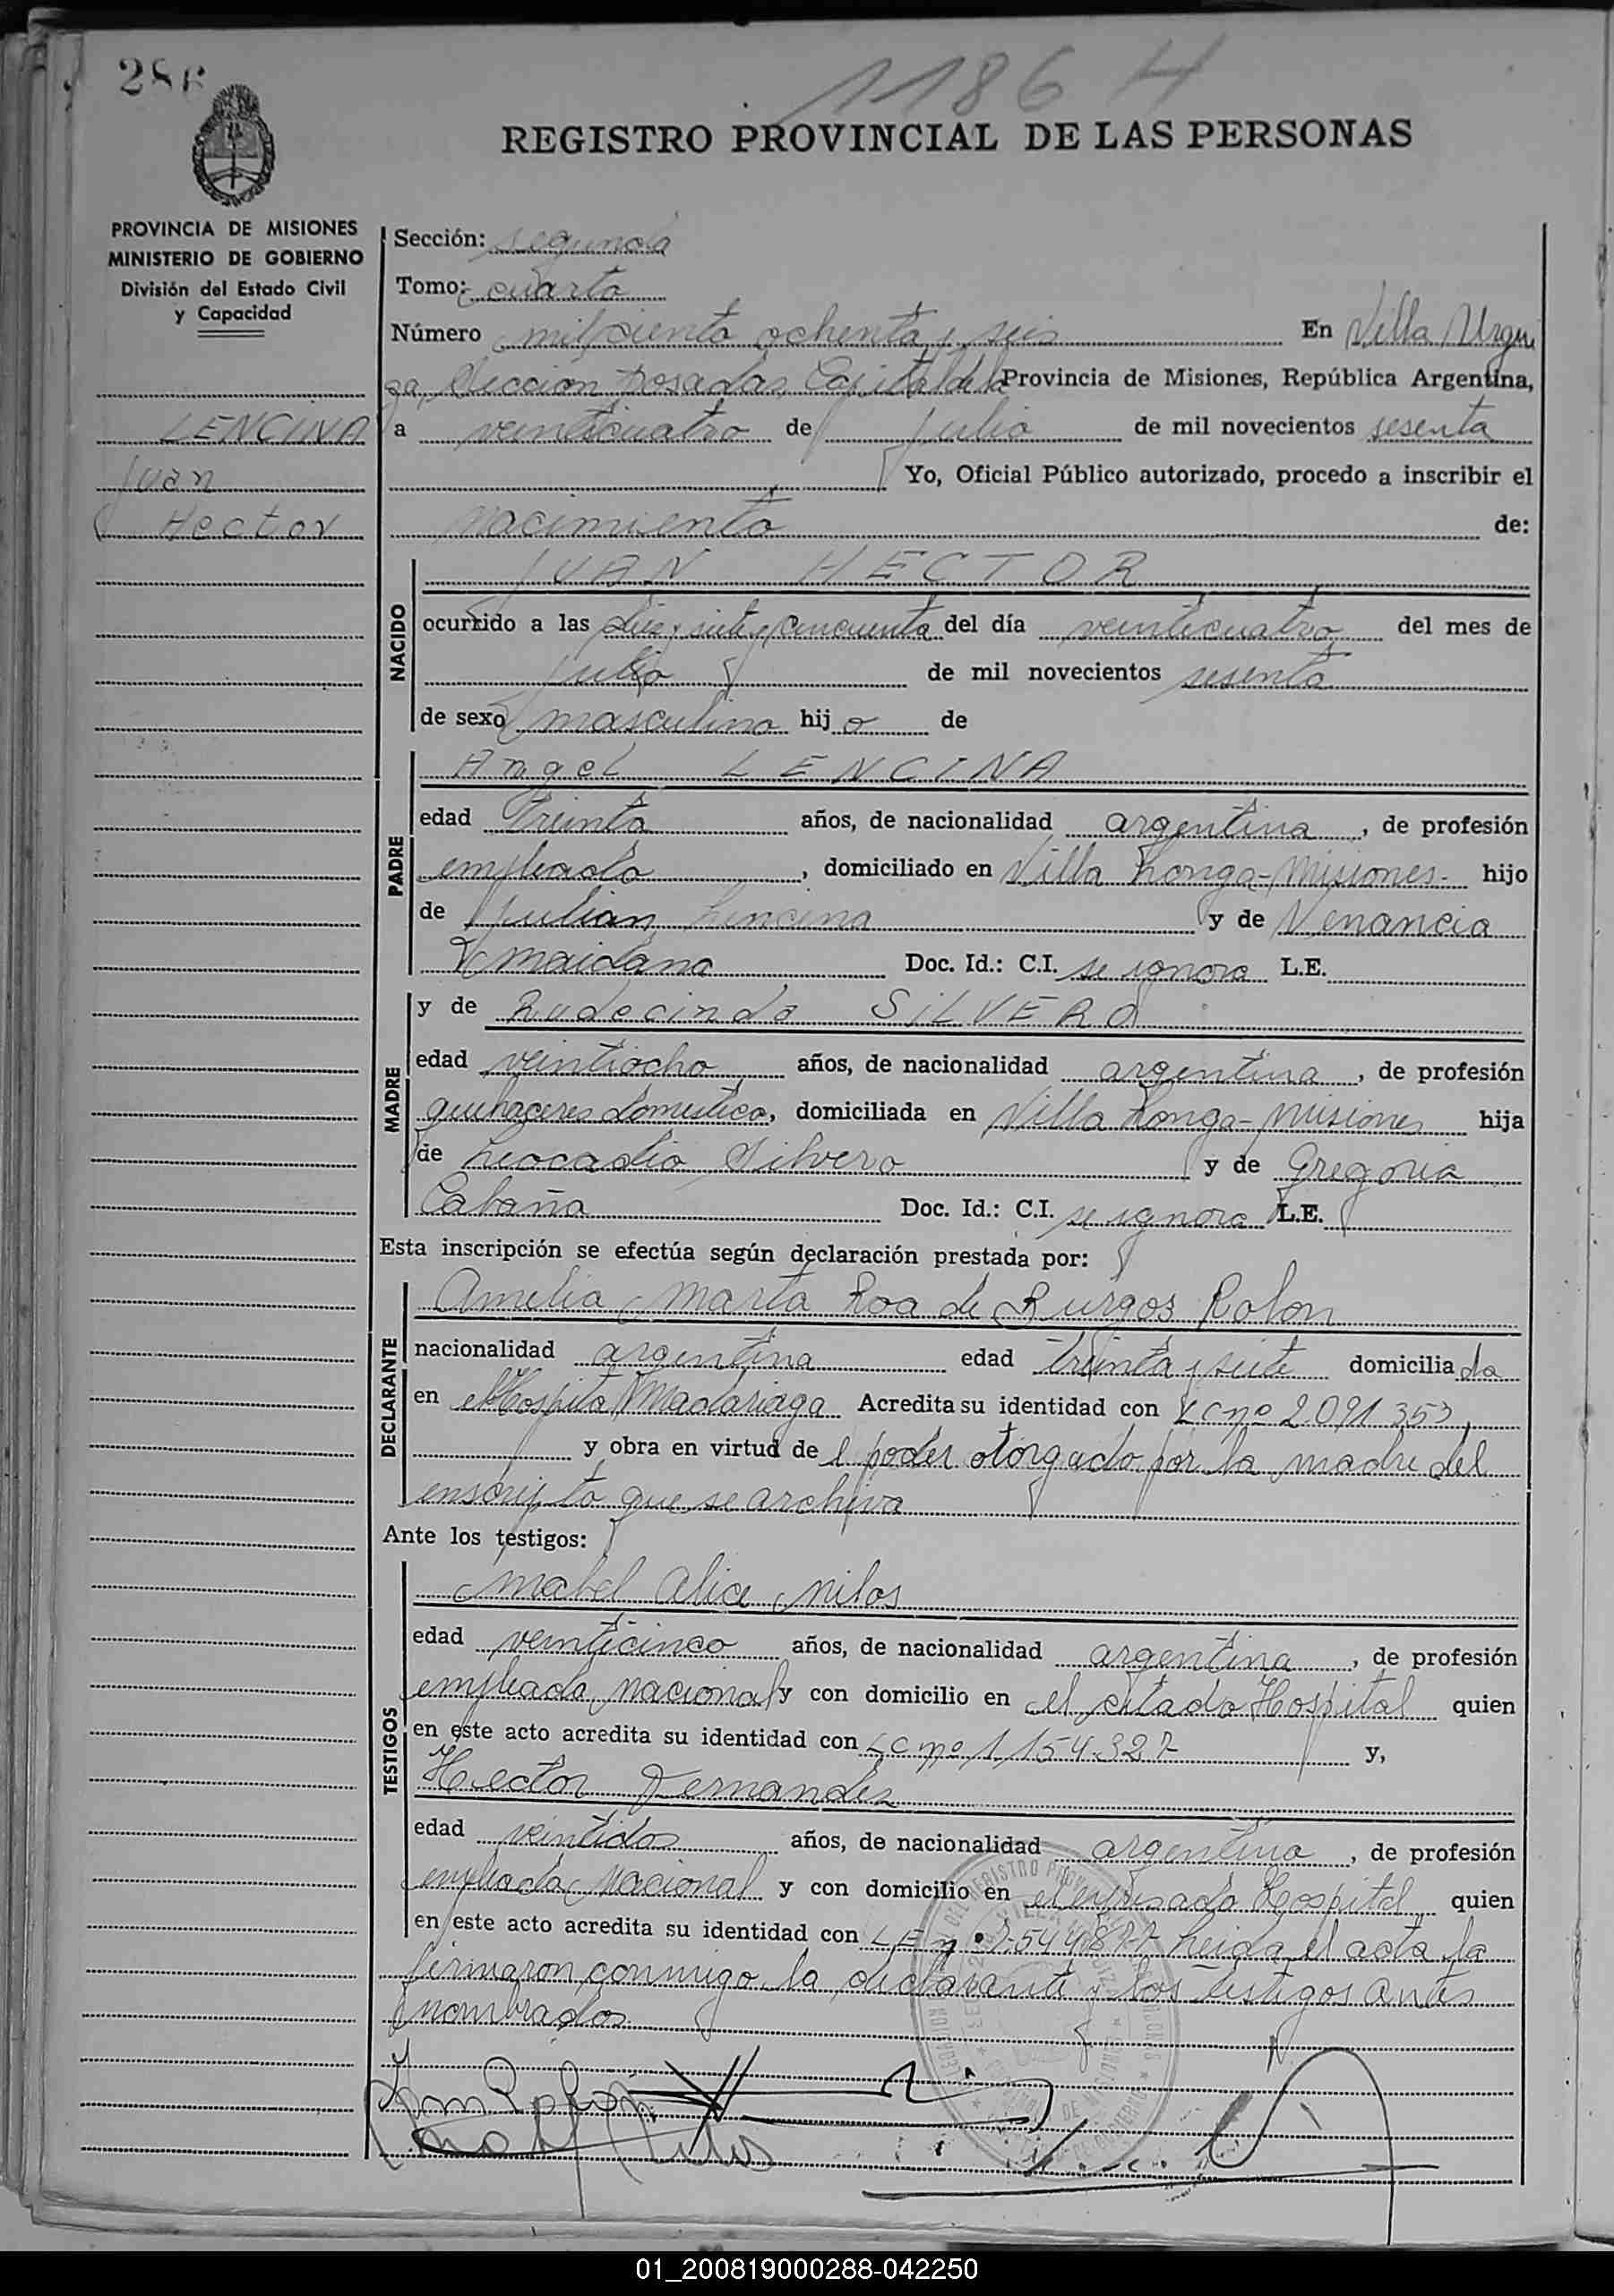 286
1186 H
REGISTRO PROVINCIAL DE LAS PERSONAS
PROVINCIA DE MISIONES
MINISTERIO DE GOBIERNO
División del Estado Civil
y Capacidad
LENCINA
Juan
Hector
Sección: segunda
Tomo: cuarto
Número mil ciento ochenta y seis En Villa Urqui
za, Sección Posadas, Capital de la Provincia de Misiones, República Argentina,
a veinticuatro de julio de mil novecientos sesenta
Yo, Oficial Público autorizado, procedo a inscribir el
nacimiento de:
NACIDO
JUAN HECTOR
ocurrido a las diez y siete y cincuenta del día veinticuatro del mes de
julio de mil novecientos sesenta
de sexo masculino hijo de
PADRE
Angel LENCINA
edad treinta años, de nacionalidad argentina, de profesión
empleado, domiciliado en Villa Longa-Misiones- hijo
de Julian Lencina y de Venancia
Maidana Doc. Id.: C.I. se ignora L.E.
MADRE
y de Rudecinda SILVERO
edad veintiocho años, de nacionalidad argentina, de profesión
quehaceres domestico, domiciliada en Villa Longa-Misiones hija
de Leocadio Silvero y de Gregoria
Cabaña Doc. Id.: C.I. se ignora L.E.
Esta inscripción se efectúa según declaración prestada por:
DECLARANTE
Amelia Marta Roa de Burgos Rolon
nacionalidad argentina edad treinta y siete domiciliada
en el Hospital Madariaga Acredita su identidad con LC nº 2.091.353,
y obra en virtud del poder otorgado por la madre del
inscripto que se archiva
Ante los testigos:
TESTIGOS
Mabel Alice Milos
edad veinticinco años, de nacionalidad argentina, de profesión
empleada nacional y con domicilio en el citado Hospital quien
en este acto acredita su identidad con LC nº 1.154.327 y,
Hector Fernandez
edad veintidos años, de nacionalidad argentina, de profesión
empleado nacional y con domicilio en el expresado Hospital quien
en este acto acredita su identidad con LE nº 7.544.877 Leida el acta la
firmaron conmigo la declarante y los testigos antes
nombrados
01_200819000288-042250